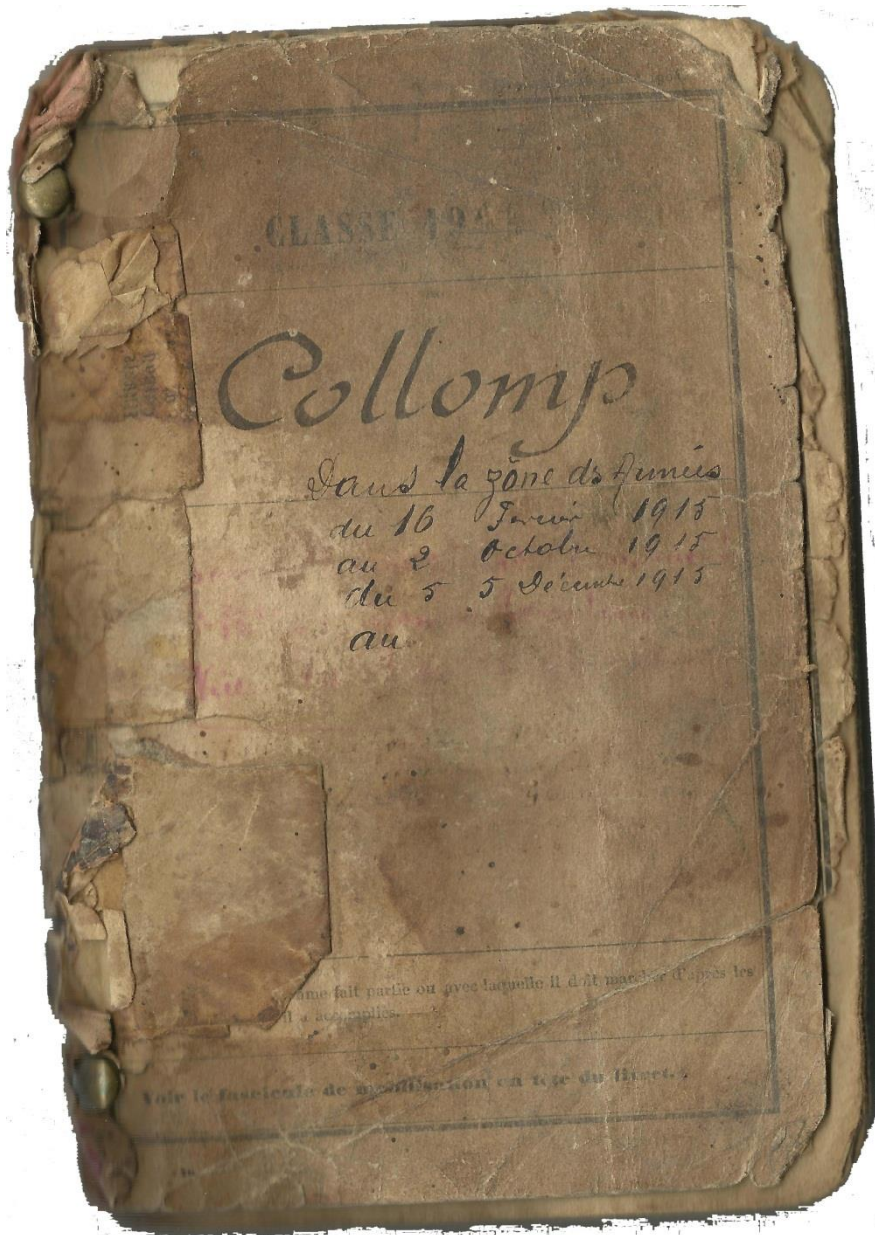 CLASSE 19
Collomp
Dans la zône ds Armées
du 16 Fevrier 1915
au 2 Octobre 1915
du 5 5 Décembre 1915
au
ame fait partie ou avec laquelle il doit marcher d'après les
il a accomplies.
Voir le fascicule de mobilisation en tête du livret.